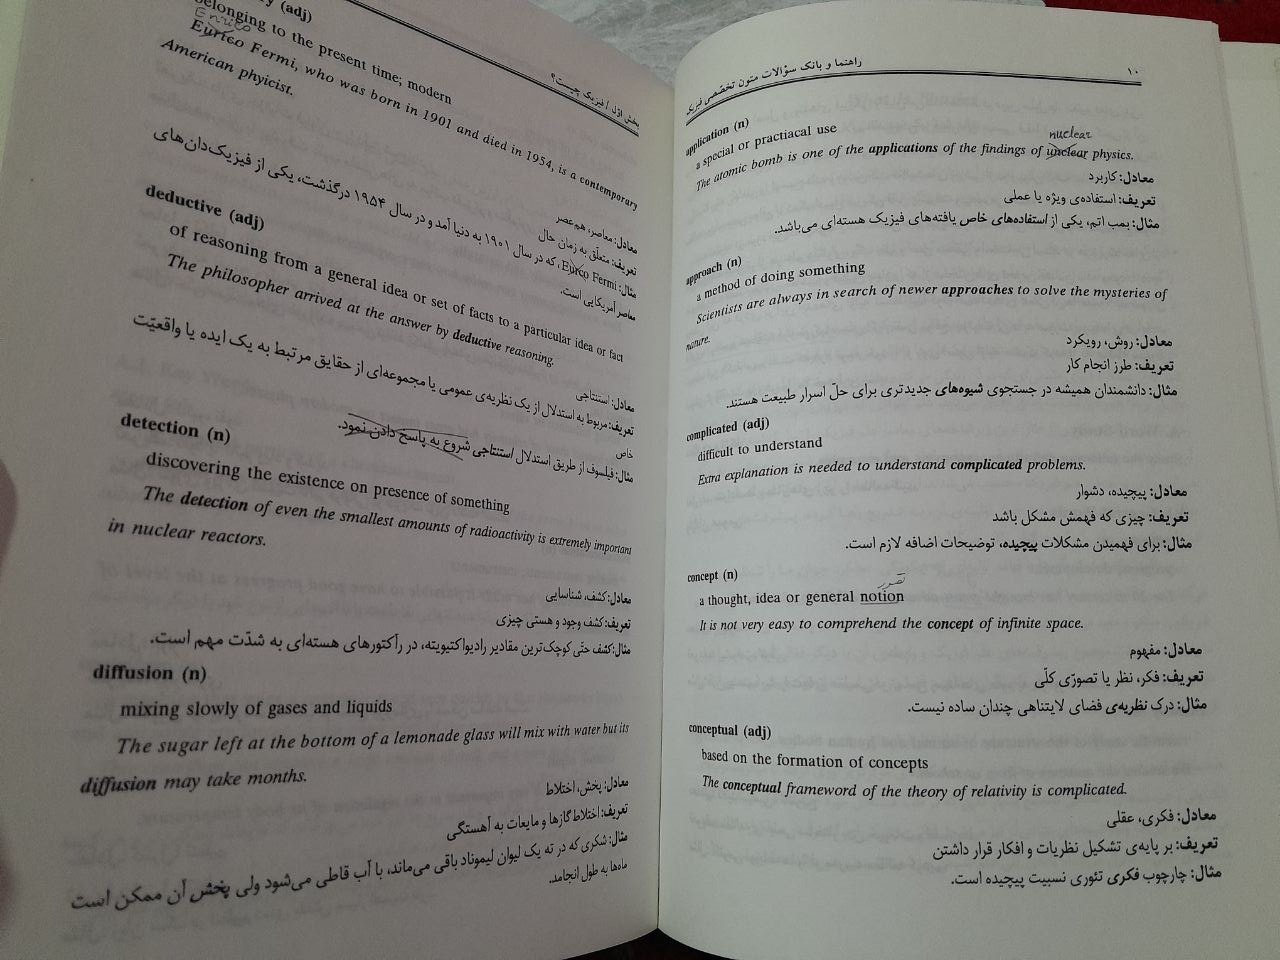 ۱۰ راهنما و بانک سؤالات متون تخصّصی فیزیک
application (n)
a special or practiacal use
nuclear
The atomic bomb is one of the applications of the findings of unclear physics.
معادل: کاربرد
تعریف: استفاده‌ی ویژه یا عملی
مثال: بمب اتم، یکی از استفاده‌های خاص یافته‌های فیزیک هسته‌ای می‌باشد.
approach (n)
a method of doing something
Scientists are always in search of newer approaches to solve the mysteries of
nature.
معادل: روش، رویکرد
تعریف: طرز انجام کار
مثال: دانشمندان همیشه در جستجوی شیوه‌های جدیدتری برای حلّ اسرار طبیعت هستند.
complicated (adj)
difficult to understand
Extra explanation is needed to understand complicated problems.
معادل: پیچیده، دشوار
تعریف: چیزی که فهمش مشکل باشد
مثال: برای فهمیدن مشکلات پیچیده، توضیحات اضافه لازم است.
concept (n)
تصور
a thought, idea or general notion
It is not very easy to comprehend the concept of infinite space.
معادل: مفهوم
تعریف: فکر، نظر یا تصورّی کلّی
مثال: درک نظریه‌ی فضای لایتناهی چندان ساده نیست.
conceptual (adj)
based on the formation of concepts
The conceptual frameword of the theory of relativity is complicated.
معادل: فکری، عقلی
تعریف: بر پایه‌ی تشکیل نظریات و افکار قرار داشتن
مثال: چارچوب فکری تئوری نسبیت پیچیده است.
بخش اوّل / فیزیک چیست؟
(adj)
belonging to the present time; modern
Enrico
Eurico Fermi, who was born in 1901 and died in 1954, is a contemporary
American phyicist.
معادل: معاصر، هم‌عصر
تعریف: متعلّق به زمان حال
مثال: Eurco Fermi، که در سال ۱۹۰۱ به دنیا آمد و در سال ۱۹۵۴ درگذشت، یکی از فیزیک‌دان‌های
معاصر آمریکایی است.
deductive (adj)
of reasoning from a general idea or set of facts to a particular idea or fact
The philosopher arrived at the answer by deductive reasoning.
معادل: استنتاجی
تعریف: مربوط به استدلال از یک نظریه‌ی عمومی یا مجموعه‌ای از حقایق مرتبط به یک ایده یا واقعیّت
خاص
مثال: فیلسوف از طریق استدلال استنتاجی شروع به پاسخ دادن نمود.
detection (n)
discovering the existence on presence of something
The detection of even the smallest amounts of radioactivity is extremely important
in nuclear reactors.
معادل: کشف، شناسایی
تعریف: کشف وجود و هستی چیزی
مثال: کشف حتّی کوچک‌ترین مقادیر رادیواکتیویته، در رآکتورهای هسته‌ای به شدّت مهم است.
diffusion (n)
mixing slowly of gases and liquids
The sugar left at the bottom of a lemonade glass will mix with water but its
diffusion may take months.
معادل: پخش، اختلاط
تعریف: اختلاط گازها و مایعات به آهستگی
مثال: شکری که در ته یک لیوان لیموناد باقی می‌ماند، با آب قاطی می‌شود ولی پخش آن ممکن است
ماه‌ها به طول انجامد.